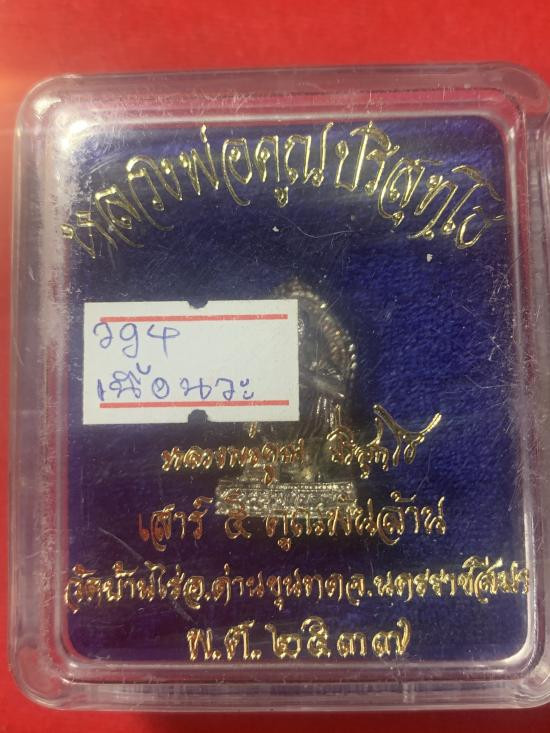 หลวงพ่อคูณปริสุทโธ
๖๑๕
เนื้อนวะ
หลวงพ่อคูณ ปริสุทโธ
เสาร์ ๕ คูณพันล้าน
วัดบ้านไร่อ.ด่านขุนทดจ.นครราชสีมา
พ.ศ.๒๕๓๗